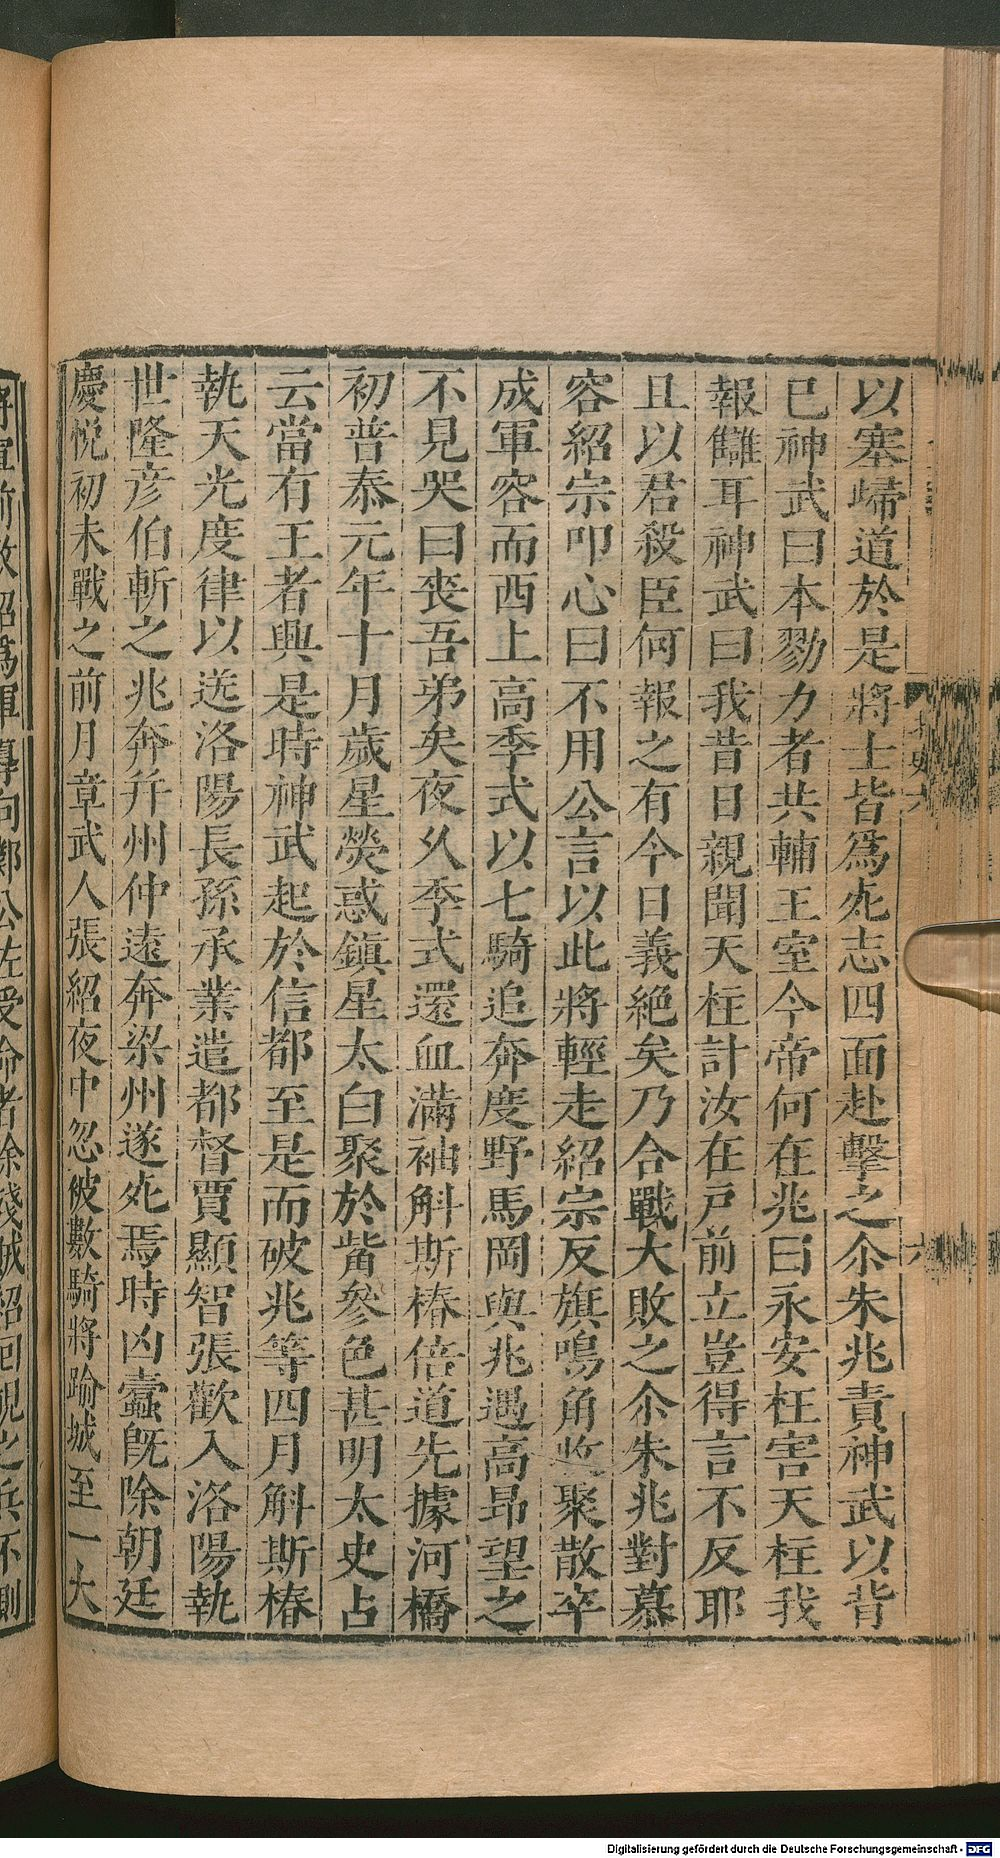 以塞歸道於是將士皆爲死志四面赴擊之尒朱兆責神武以背
已神武曰本勠力者共輔王室今帝何在兆曰永安枉害天柱我
報讎耳神武曰我昔日親聞天柱計汝在戸前立豈得言不反耶
且以君殺臣何報之有今日義絶矣乃合戰大敗之尒朱兆對慕
容紹宗叩心曰不用公言以此將輕走紹宗反旗鳴角收聚散卒
成軍容而西上高季式以七騎追奔度野馬岡與兆遇高昻望之
不見哭曰喪吾弟矣夜久季式還血滿袖斛斯椿倍道先據河橋
初普泰元年十月歲星熒惑鎮星太白聚於觜參色甚明太史占
云當有王者興是時神武起於信都至是而破兆等四月斛斯椿
執天光度律以送洛陽長孫承業遣都督賈顯智張歡入洛陽執
世隆彦伯斬之兆奔幷州仲遠奔梁州遂死焉時凶蠹旣除朝廷
慶悦初未戰之前月章武人張紹夜中忽被數騎將踰城至一大
將軍前敕紹爲軍導向鄴公佐受命者除殘賊紹回視之兵不測
北史六
六
Digitalisierung gefördert durch die Deutsche Forschungsgemeinschaft - DFG